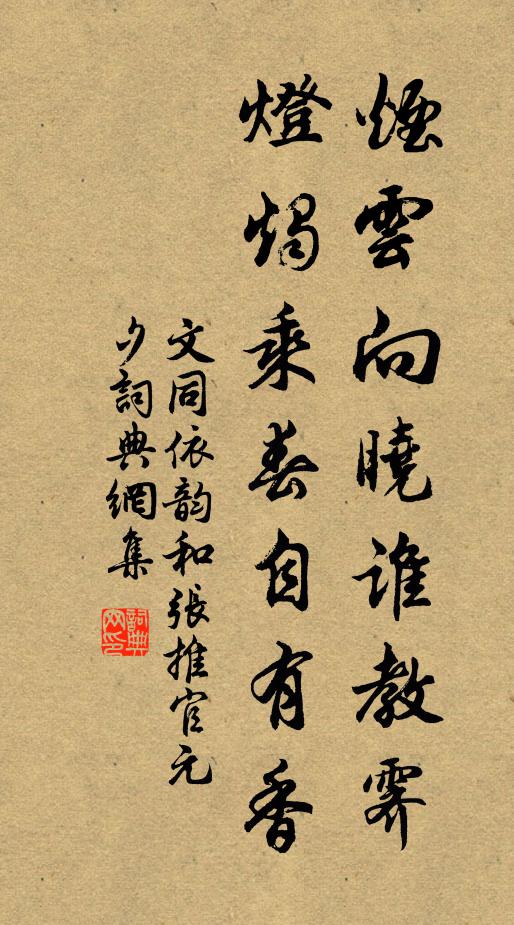 煙雲向曉誰教霽
燈燭乘春自有香
文同依韵和張推官元
夕詞典網集
詞典
网印